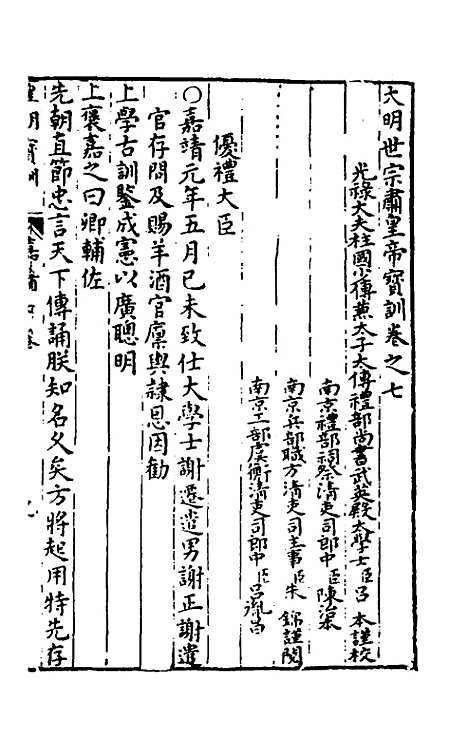 大明世宗肅皇帝寶訓卷之七
光祿大夫柱國少傅兼太子太傅禮部尚書武英殿大學士臣呂 本謹校
南京禮部祠祭清吏司郎中臣陳治本
南京兵部職方清吏司主事臣朱 錦謹閱
南京工部虞衡清吏司郎中臣呂胤昌
優禮大臣
○嘉靖元年五月己未致仕大學士謝遷遣男謝正謝遣
官存問及賜羊酒官廩輿隸恩因勸
上學古訓鑒成憲以廣聰明
上褒嘉之曰卿輔佐
先朝直節忠言天下傳誦朕知名久矣方將起用特先存
皇明寶訓 嘉靖卷